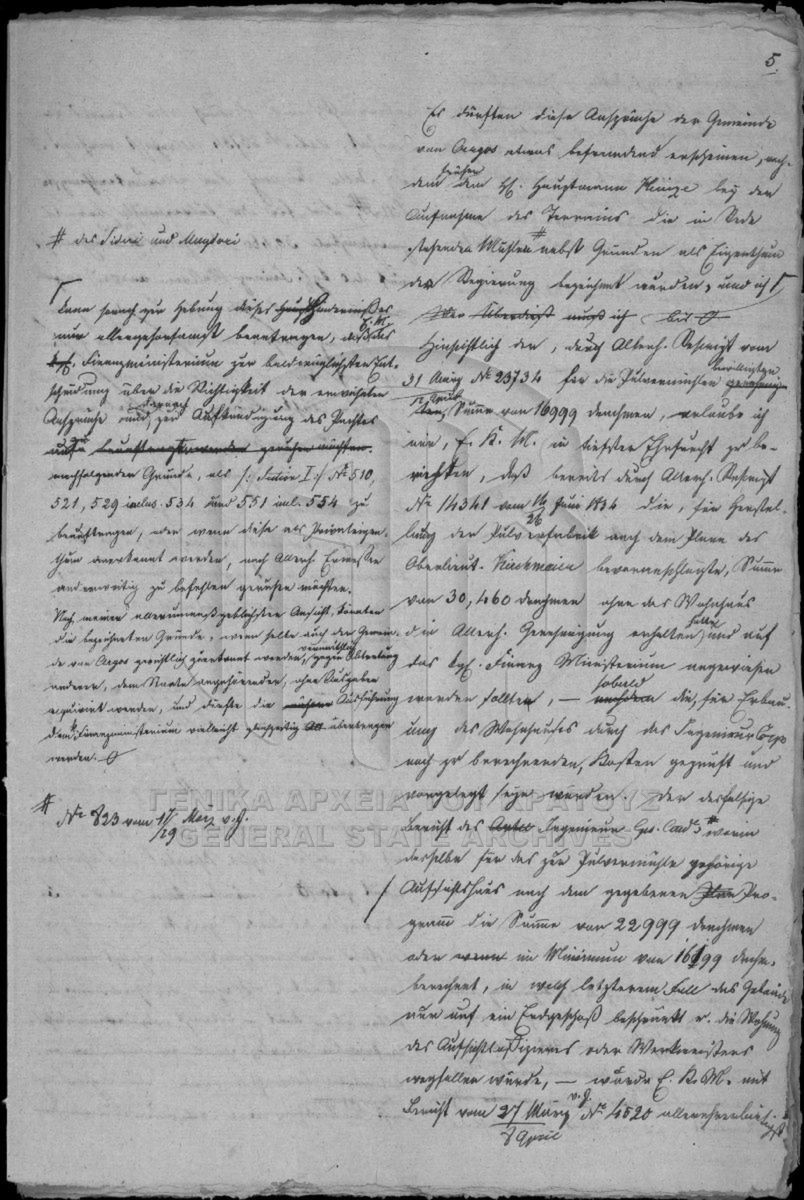 5.
Es dürften diese Ansprüche der Gemeinde
von Argos etwas befremdend erscheinen, nach-
dem früher dem H. Hauptmann Heinze bey der
Aufnahme des Terrains die in Rede
stehenden Mühlen # nebst Gründen als Eigenthum
der Regierung bezeichnet wurden, und ich
Hinsichtlich der, durch Allerh. Rescript vom
31 März No 23734 für die Pulvermühlen bewilligten
Summe von 16999 Drachmen, erlaube ich
mir, E. K. M. in tiefster Ehrfurcht zu be-
richten, daß bereits durch Allerh. Rescript
No 14341 vom 14/26 Juni 1834 die, für Herstel-
lung der Pulverfabrik nach dem Plane des
Oberlieut. Kirchmaier bevoranschlagte, Summe
von 30,460 Drachmen ohne das Wohnhaus
die Allerh. Genehmigung erhalten hatte, und auf
das kgl. Finanz Ministerium angewiesen
werden sollten, — sobald die, für Erbau-
ung des Wohnhauses durch das Ingenieur Corps
noch zu berechnenden, Kosten geprüft und
vorgelegt seyn werden. Den desfalsige
Bericht des Ingenieur Cps. Cmdo's # worin
dasselbe für das zur Pulvermühle gehörige
Aufsichtshaus nach dem gegebenen Pro-
gram̅ die Summe von 22999 Drachmen
oder im Minimum von 16199 Drchm.
berechnet, in welch letzterem Fall das Gebäude
nur auf ein Erdgeschoß beschränkt u. die Wohnung
des Aufsichtsoffiziers oder Werkmeisters
wegfallen würde, — wurde E. K. M. mit
Bericht vom 27 März/8 April v. J. No 4520 allerehrerbietigst
# des Sitari und Mazorei
kann sonach zur Hebung dieses Hindernisses
nur allergehorsamst beantragen, daß E. K. M. das
Finanzministerium zur baldmöglichsten Ent-
scheidung über die Richtigkeit der erwähnten
Ansprüche und zur Aufkündigung des Pachtes
nachfolgender Gründe, als /: Section I :/ No 510,
521, 529 inclus. 534 und 551 incl. 554 zu
beauftragen, oder wenn diese als Privateigen-
thum anerkannt werden, nach Allerh. Ermessen
anderweitig zu befehlen geruhen möchten.
Nach meiner allerunmaßgeblichsten Ansicht, könnten
die bezeichneten Gründe, wenn selbe auch der Gemein-
de von Argos gerichtlich zuerkannt werden, gegen Abtretung
anderer, dem Staate angehörender, ohne Ausgaben
acquirirt werden, und dürfte die Ausführung
dem k. Finanzministerium vielleicht gleichzeitig übertragen
werden.
# No 823 vom 17/29 März v. J.
ΓΕΝΙΚΑ ΑΡΧΕΙΑ ΤΟΥ ΚΡΑΤΟΥΣ
GENERAL STATE ARCHIVES